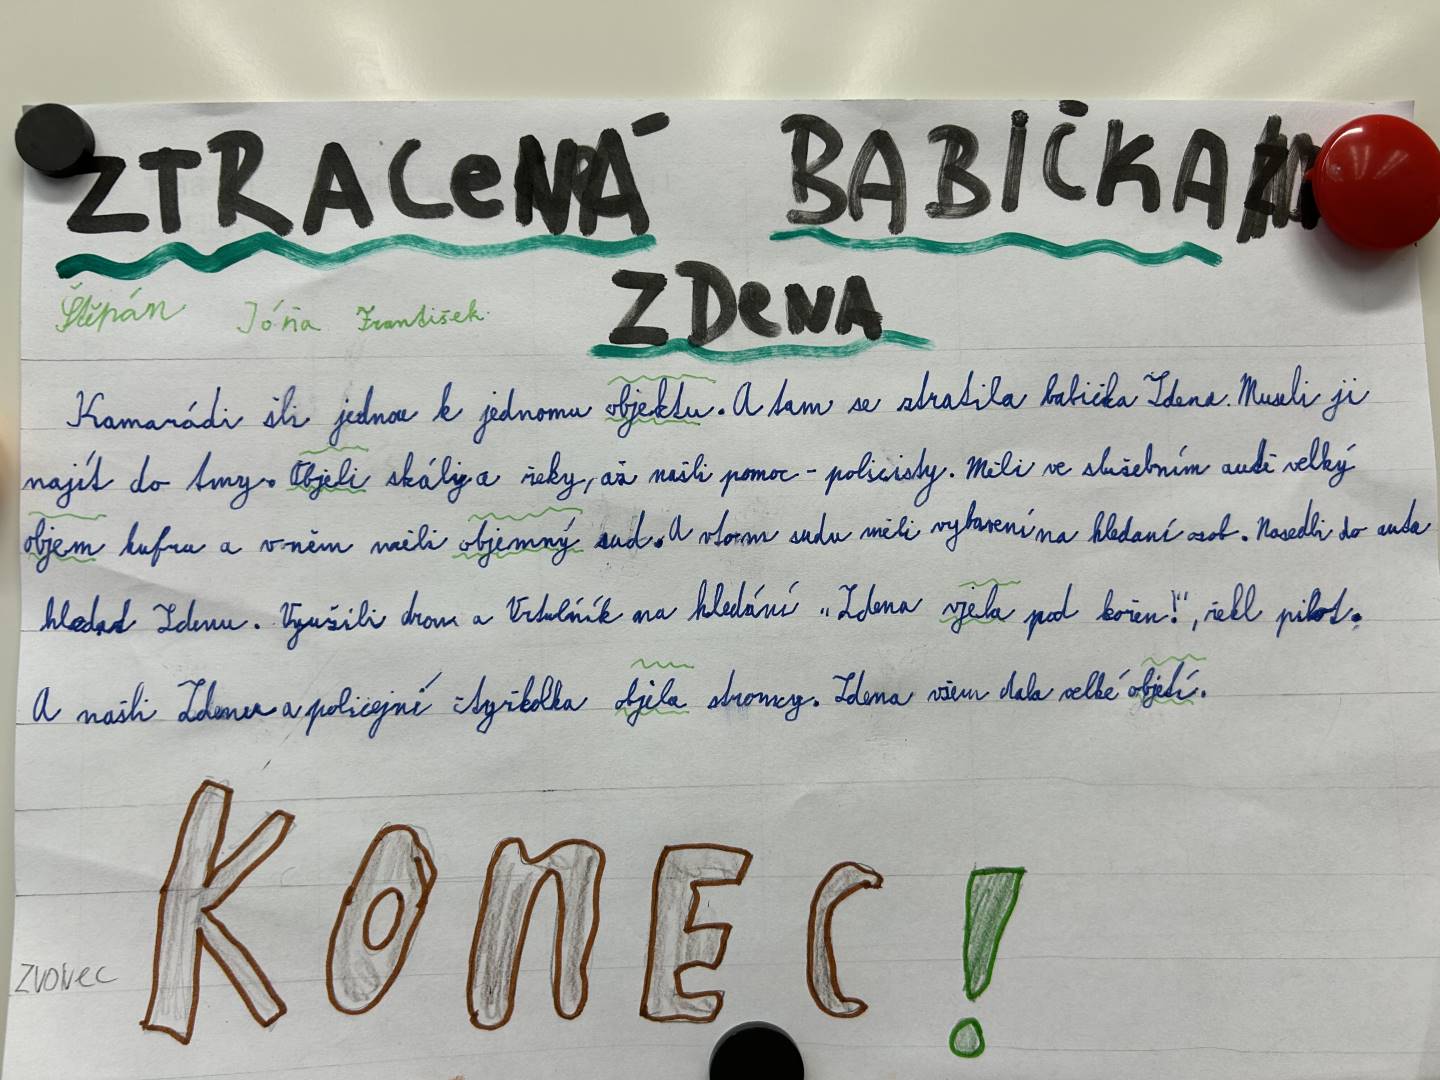 ZTRACENÁ BABIČKA
ZDENA
Štěpán Jóňa František
Kamarádi šli jednou k jednomu objektu. A tam se ztratila babička Zdena. Museli ji
najít do tmy. Objeli skály a řeky, až našli pomoc - policisty. Měli ve služebním autě velký
objem kufru a v něm měli objemný sud. A vtom sudu měli vybavení na hledaní osob. Nasedli do auta
hledat Zdenu. Využili dron a Vrtulník na hledání „Zdena vjela pod kořen!", řekl pilot.
A našli Zdenu a policejní čtyřkolka objela stromky. Zdena všem dala velké objetí.
KONEC!
ZVONEC